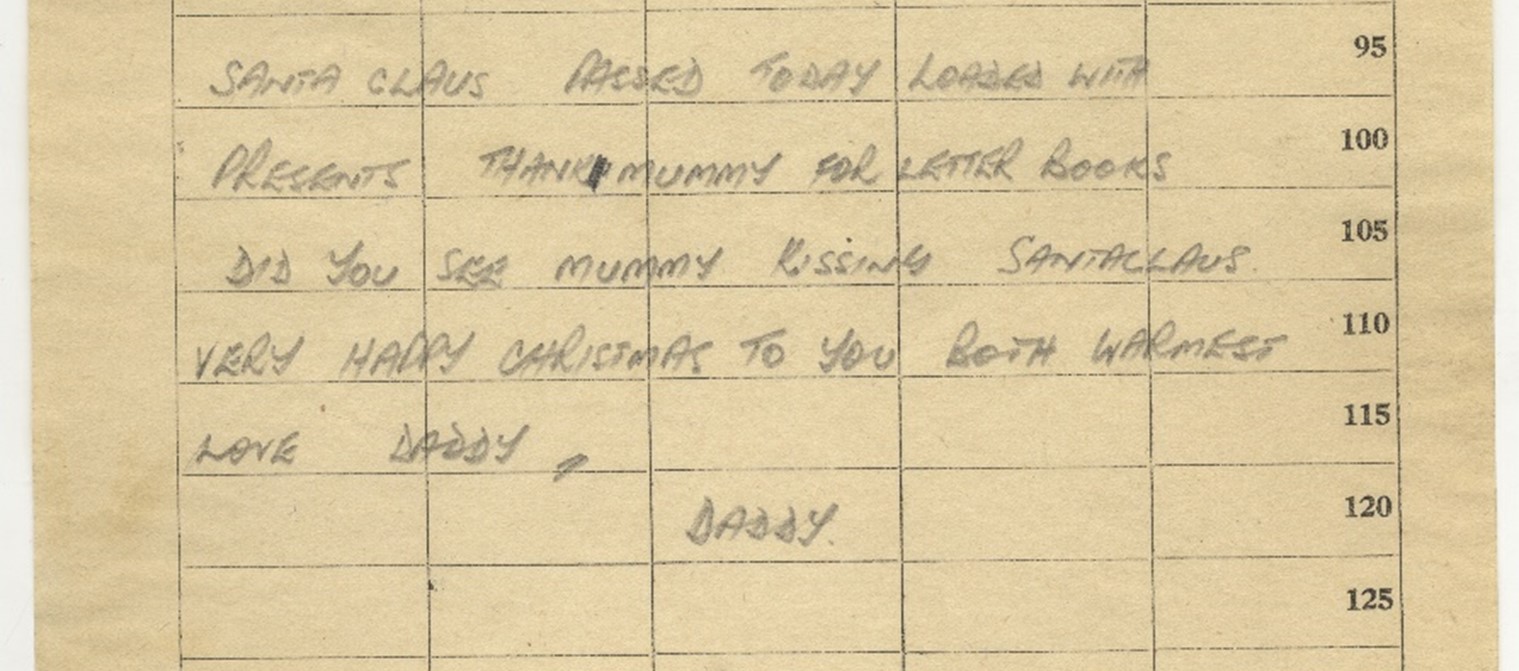 95
SANTA CLAUS PASSED TODAY LOADED WITH
100
PRESENTS THANK MUMMY FOR LETTER BOOKS
105
DID YOU SEE MUMMY KISSING SANTACLAUS.
110
VERY HAPPY CHRISTMAS TO YOU BOTH WARMEST
115
LOVE DADDY
120
DADDY.
125